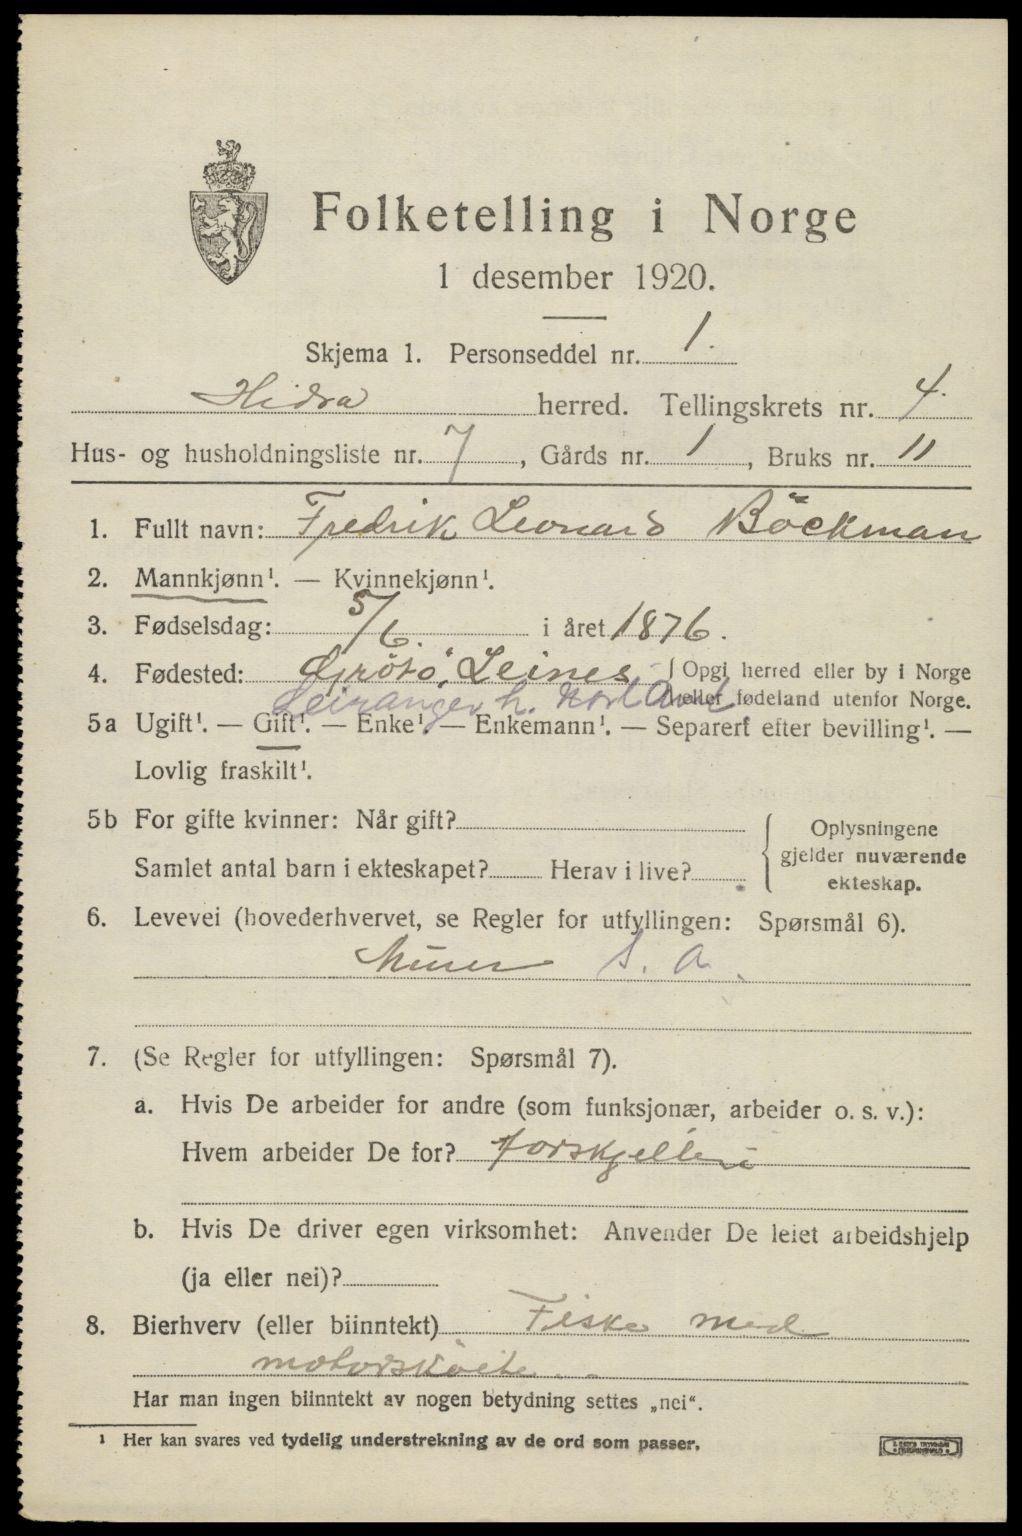 Folketelling i Norge
1 desember 1920.
Skjema 1. Personseddel nr. 1.
Hidra herred. Tellingskrets nr. 4.
Hus- og husholdningsliste nr. 7, Gårds nr. 1, Bruks nr. 11
1. Fullt navn: Fredrik Leonard Böckman
2. Mannkjønn¹. — Kvinnekjønn¹.
3. Fødselsdag: 5/6. i året 1876.
4. Fødested: Grötö, Leines { Opgi herred eller by i Norge
Leiranger h. Nordland. eller fødeland utenfor Norge.
5a Ugift¹. — Gift¹. — Enke¹. — Enkemann¹. — Separert efter bevilling¹. —
Lovlig fraskilt¹.
5b For gifte kvinner: Når gift?
Samlet antal barn i ekteskapet? Herav i live?
Oplysningene
gjelder nuværende
ekteskap.
6. Levevei (hovederhvervet, se Regler for utfyllingen: Spørsmål 6).
Murer S. A.
7. (Se Regler for utfyllingen: Spørsmål 7).
a. Hvis De arbeider for andre (som funksjonær, arbeider o. s. v.):
Hvem arbeider De for? forskjellige
b. Hvis De driver egen virksomhet: Anvender De leiet arbeidshjelp
(ja eller nei)?
8. Bierhverv (eller biinntekt) Fiske med
motorskøite.
Har man ingen biinntekt av nogen betydning settes „nei“.
¹ Her kan svares ved tydelig understrekning av de ord som passer.